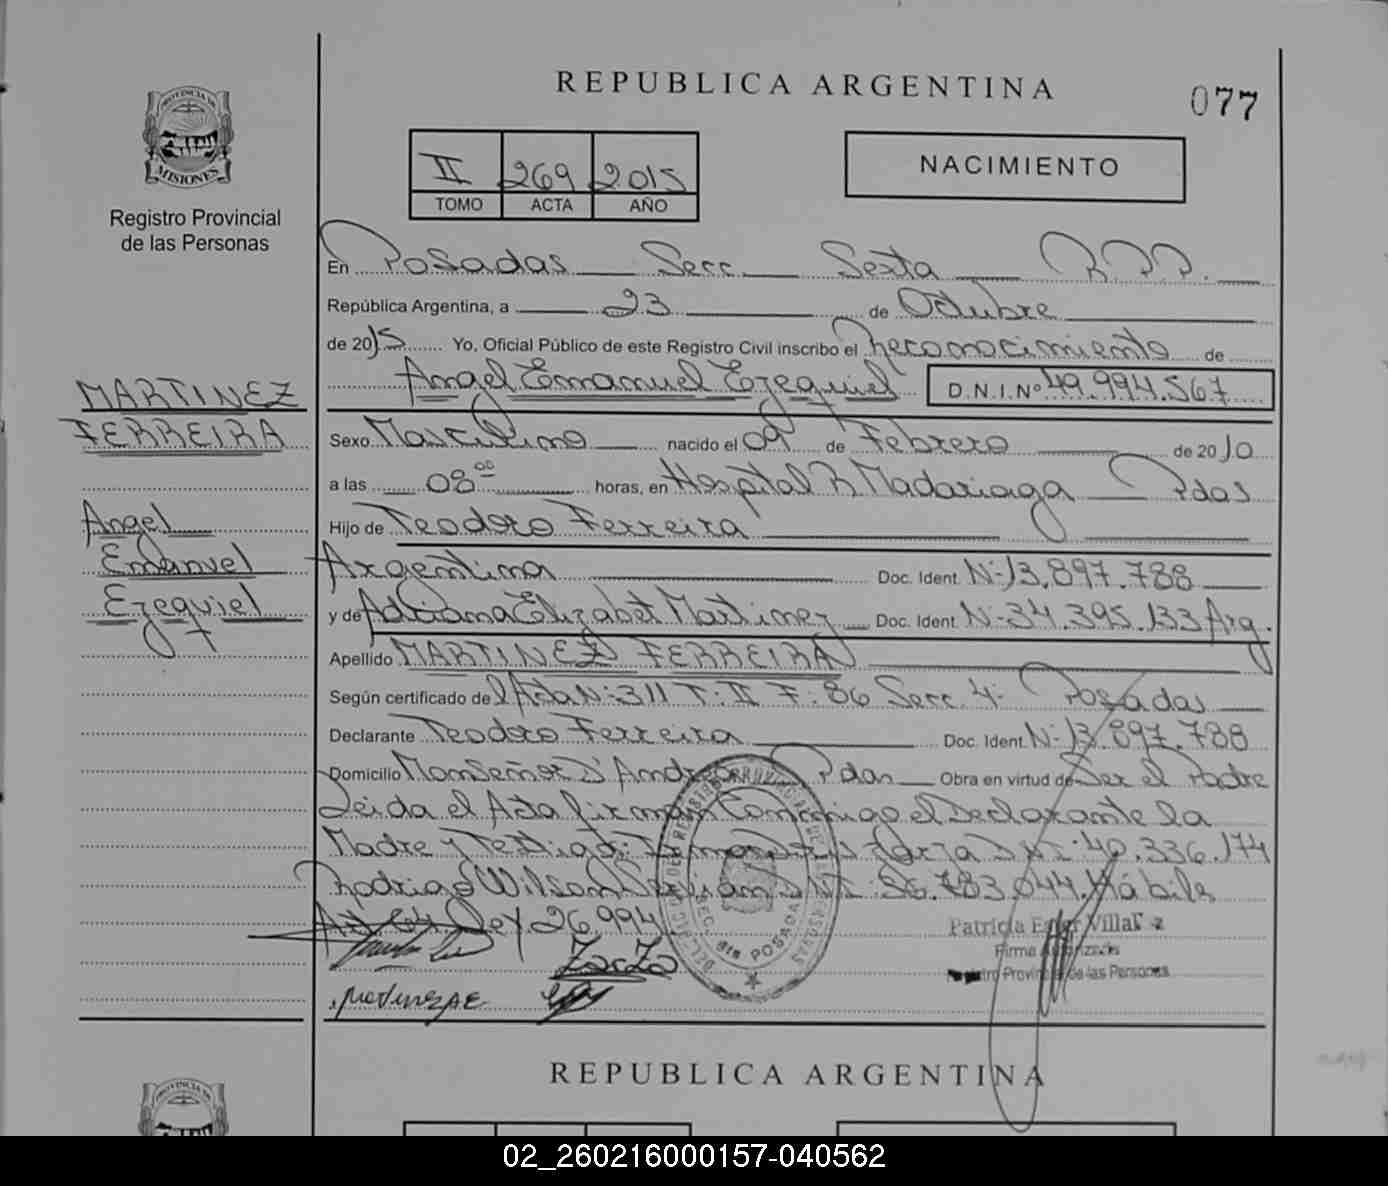 REPUBLICA ARGENTINA
077
PROVINCIA DE
MISIONES
Registro Provincial
de las Personas
II 269 2015
TOMO ACTA AÑO
NACIMIENTO
En Posadas Secc. Sexta R.P.P.
República Argentina, a 23 de Octubre
de 2015 Yo, Oficial Público de este Registro Civil inscribo el Reconocimiento de
Angel Emanuel Ezequiel D.N.I.Nº 49.994.567
MARTINEZ
FERREIRA
Angel
Emanuel
Ezequiel
Sexo Masculino nacido el 09 de Febrero de 2010
a las 08⁰⁰ horas, en Hospital R. Madariaga Pdas
Hijo de Teodoro Ferreira
Argentina Doc. Ident. Nº 13.897.788
y de Adriana Elizabet Martinez Doc. Ident. Nº 34.395.133 Arg.
Apellido MARTINEZ FERREIRA
Según certificado del Acta Nº 311 T: II F: 86 Secc. 4º Posadas
Declarante Teodoro Ferreira Doc. Ident. Nº 13.897.788
Domicilio Monseñor D'Andrea Pdas Obra en virtud de Ser el Padre
Leida el Acta firman Conmigo el Declarante la
Madre y Testigos: Zarza DNI: 40.336.174
Rodrigo Wilson DNI: 36.783.044. Hábiles
Art. 64 Ley 26.994
Zarza
Martinez A E
SEC. 6ta POSADAS
Patricia Ester
Firma Autorizada
Registro Provincial de las Personas
REPUBLICA ARGENTINA
PROVINCIA DE
02_260216000157-040562